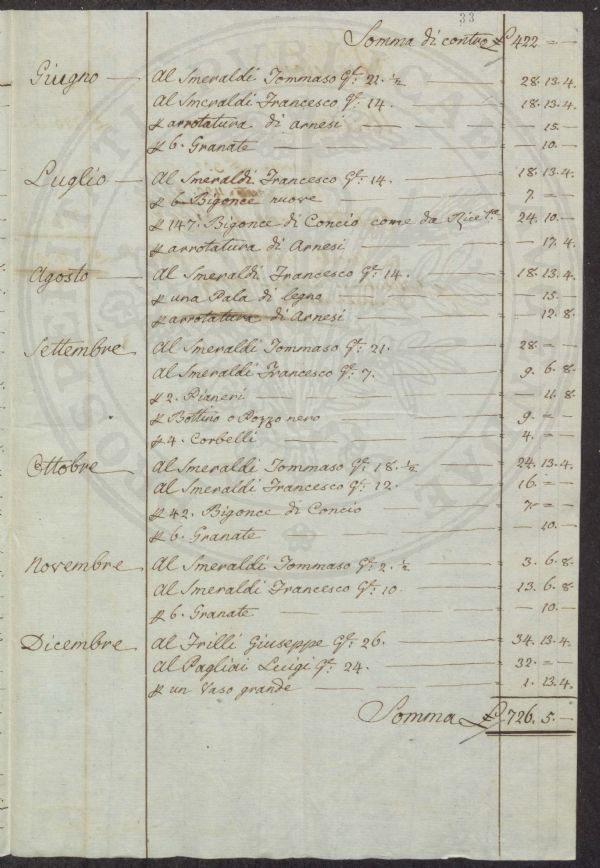 33
Somma di contro £ 422 = =
Giugno — Al Smeraldi Tommaso Gte. 21. ½ — 28. 13. 4.
Al Smeraldi Francesco Gte. 14. — 18. 13. 4.
p arrotatura di arnesi — 15. —
p 6. Granate — 10. —
Luglio — Al Smeraldi Francesco Gte. 14. — 18. 13. 4.
p 6. Bigonce nuove — 7. = —
p 147. Bigonce di Concio come da Ricta. — 24. 10. —
p arrotatura di Arnesi — 17. 4.
Agosto — Al Smeraldi Francesco Gte. 14. — 18. 13. 4.
p una Pala di legno — 15. —
p arrotatura di Arnesi — 12. 8.
Settembre — Al Smeraldi Tommaso Gte. 21. — 28. = —
Al Smeraldi Francesco Gte. 7. — 9. 6. 8.
p 2. Pianeri — 8.
p Bottino o Pozzo nero — 9. = —
p 4. Corbelli — 4. = —
Ottobre — Al Smeraldi Tommaso Gte. 18. ½ — 24. 13. 4.
Al Smeraldi Francesco Gte. 12. — 16. = —
p 42. Bigonce di Concio — 7. = —
p 6. Granate — 10. —
Novembre — Al Smeraldi Tommaso Gte. 2. ½ — 3. 6. 8.
Al Smeraldi Francesco Gte. 10. — 13. 6. 8.
p 6. Granate — 10. —
Dicembre — Al Trilli Giuseppe Gte. 26. — 34. 13. 4.
Al Pagliai Luigi Gte. 24. — 32. = —
p un Vaso grande — 1. 13. 4.
Somma £ 726. 5. —